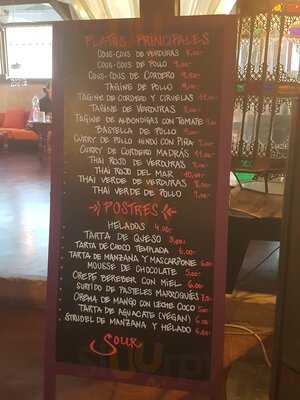 PLATOS PRINCIPALES
COUS-COUS DE VERDURAS 8.00-
COUS-COUS DE POLLO 9.00-
COUS-COUS DE CORDERO
TAGINE DE POLLO
TAGINE DE CORDERO Y CIRUELAS
TAGINE DE VERDURAS
TAGINE DE ALBONDIGAS CON TOMATE
BASTELLA DE POLLO
CURRY DE POLLO HINDÚ CON PIÑA
CURRY DE CORDERO MADRÁS
THAI ROJO DE VERDURAS
THAI ROJO DEL MAR
THAI VERDE DE VERDURAS
THAI VERDE DE POLLO
POSTRES
HELADOS 4.00-
TARTA DE QUESO
TARTA DE CHOCO TEMPLADA 6.00-
TARTA DE MANZANA Y MASCARPONE 6.00-
MOUSSE DE CHOCOLATE 5.00-
CREPE BEREBER CON MIEL 6.00-
SURTIDO DE PASTELES MARROQUIES
CREMA DE MANGO CON LECHE COCO 5.00-
TARTA DE AGUACATE (VEGAN) 6.00-
STRUDEL DE MANZANA Y HELADO 6.00-
SOUK